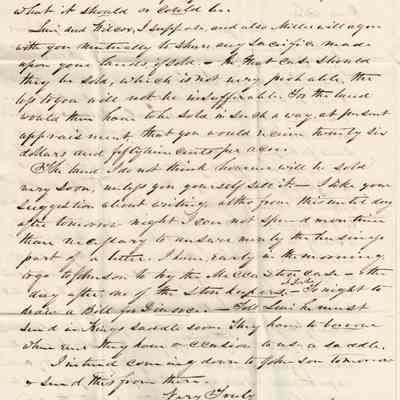 what it should or would be.
Levi and Wilcox, I suppose, and also Miller will agree
with you mutually to share any sacrifice made
upon your lands, if sold. & In that case should
they be sold, which is not very probable, the
loss to you will not be insufferable. For the land
would then have to be sold in such a way, at present
appraisement that you would receive twenty six
dollars and fifty nine cents per acre.
The land I do not think however will be sold
very soon, unless you yourself sell it. I like your
suggestion about writing, altho from this until day
after tomorrow night I can not spend more time
than necessary to answer merely the business
part of a letter. I have, early in the morning,
to go to Johnson to try the case – & the
day after one of the – & I ought to
draw a Bill for Divorce. – Tell Levi he must
send in Kings saddle soon. They have to borrow
when ever they have occasion to use a saddle.
I intend coming down to Johnson tomorrow
& send this from there.
Very Truly